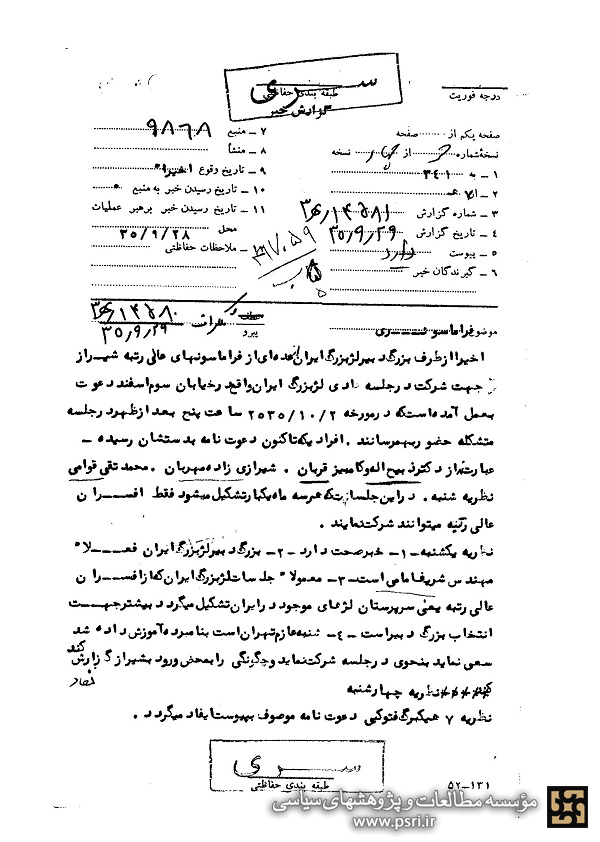 سری
طبقه بندی حفاظتی
گزارش خبر
درجه فوریت
صفحه یکم از صفحه
نسخه شماره از نسخه
۱ - به ۳۴۱
۲ - از ۷ هـ
۳ - شماره گزارش
۴ - تاریخ گزارش ۳۵/۹/۲۹
۵ - پیوست دارد
۶ - گیرندگان خبر
۷ - منبع ۹۸۶۸
۸ - منشأ
۹ - تاریخ وقوع اخیرا"
۱۰ - تاریخ رسیدن خبر به منبع
۱۱ - تاریخ رسیدن خبر برهبر عملیات
محل ۳۵/۹/۲۸
ملاحظات حفاظتی
موضوع فراماسونری
پیرو
۳۵/۹/۲۹
اخیرا از طرف بزرگ دبیر لژ بزرگ ایران از عده ای از فراماسونهای عالی رتبه شیراز
جهت شرکت در جلسه عادی لژ بزرگ ایران واقع در خیابان سوم اسفند دعوت
بعمل آمده است که در مورخه ۲۵۳۵/۱۰/۲ ساعت پنج بعد از ظهر در جلسه
متشکله حضور بهمرسانند. افرادیکه تاکنون دعوت نامه بدستشان رسیده -
عبارتند از دکتر ذبیح اله و کامبیز قربان . شیرازی زاده مهربان . محمد تقی قوامی
نظریه شنبه . در این جلسات که هر سه ماه یکبار تشکیل میشود فقط افسران
عالی رتبه میتوانند شرکت نمایند .
نظریه یکشنبه - ۱- خبر صحت دارد - ۲- بزرگ دبیر لژ بزرگ ایران فعلا"
مهندس شریف امامی است - ۳- معمولا" جلسات لژ بزرگ ایران که از افسران
عالی رتبه یعنی سرپرستان لژهای موجود در ایران تشکیل میگردد بیشتر جهت
انتخاب بزرگ دبیر است - ٤- شنبه عازم تهران است بنامبرده آموزش داده شد
سعی نماید بنحوی در جلسه شرکت نماید و چگونگی را بمحض ورود بشیراز گزارش کند
نظریه چهارشنبه
نظریه ۷ هـ یکبرگ فتوکپی دعوت نامه موصوف بپیوست ایفاد میگردد .
سری
طبقه بندی حفاظتی
۵۲-۱۳۱
مؤسسه مطالعات و پژوهشهای سیاسی
www.psri.ir